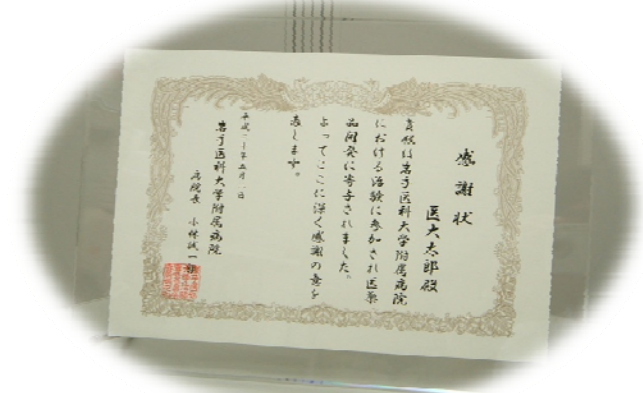 感謝状
医大太郎殿
貴殿は岩手医科大学附属病院
における治験に参加され医薬
品開発に寄与されました。
よってここに深く感謝の意を
表します。
平成二十年五月一日
岩手医科大学附属病院
病院長 小林誠一郎